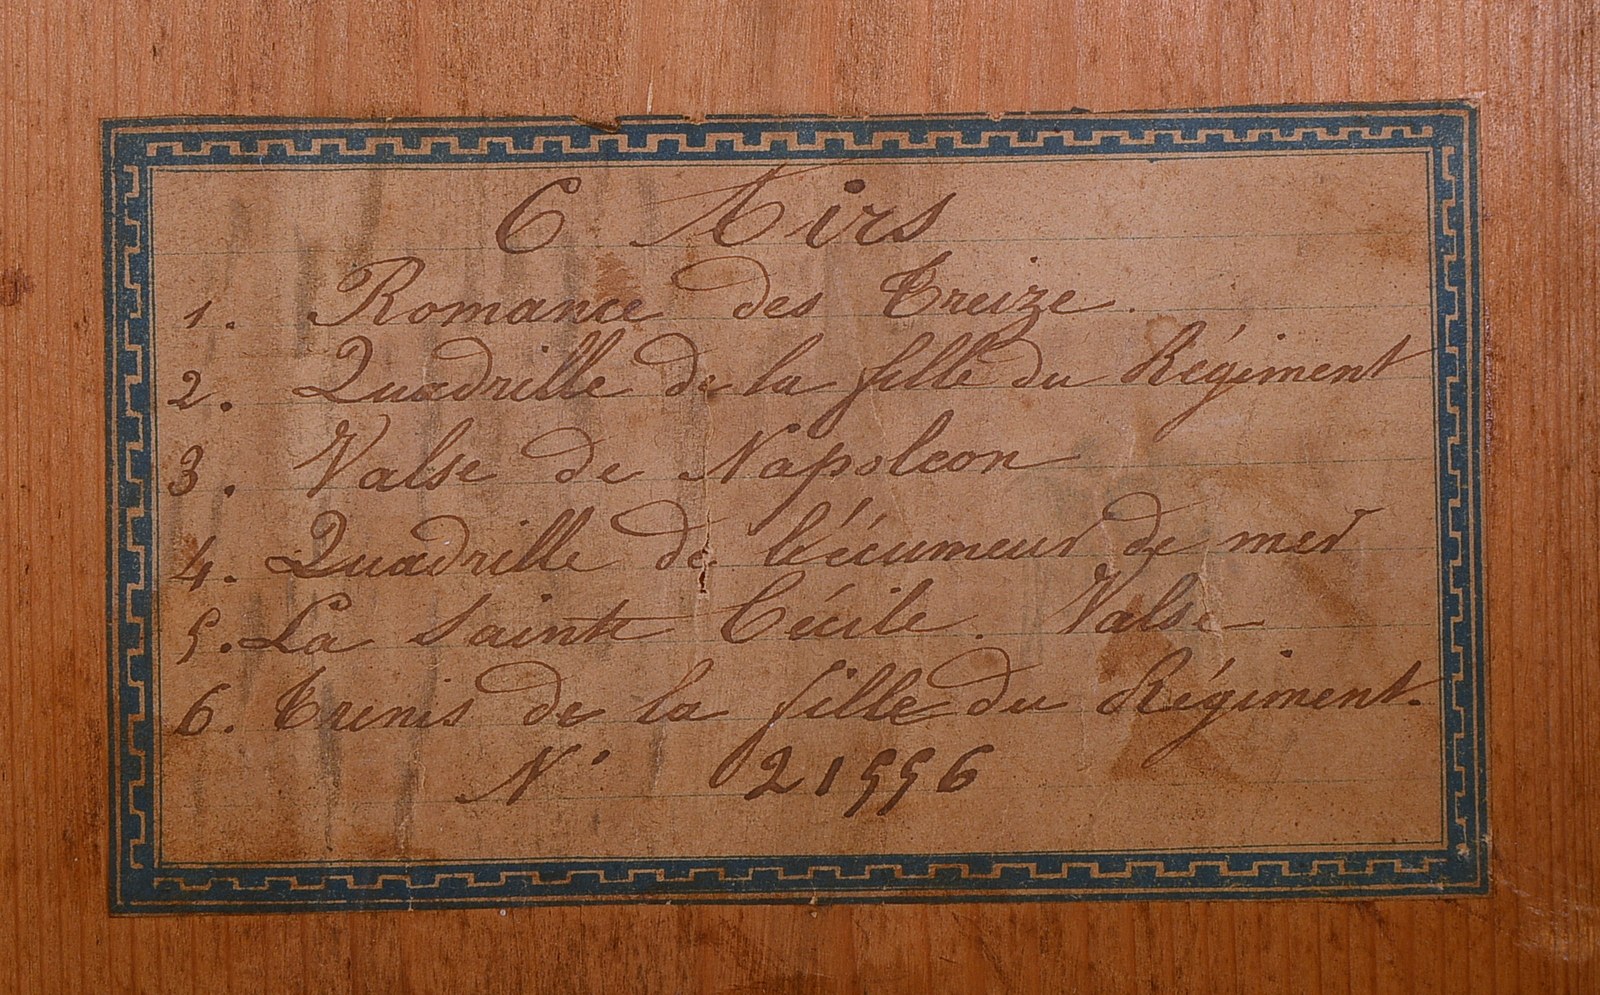 6 Airs
1. Romance des Treize.
2. Quadrille de la fille du Régiment
3. Valse de Napoleon
4. Quadrille de l'écumeur de mer
5. La Sainte Cécile. Valse
6. Trenis de la fille du Régiment.
N° 21556